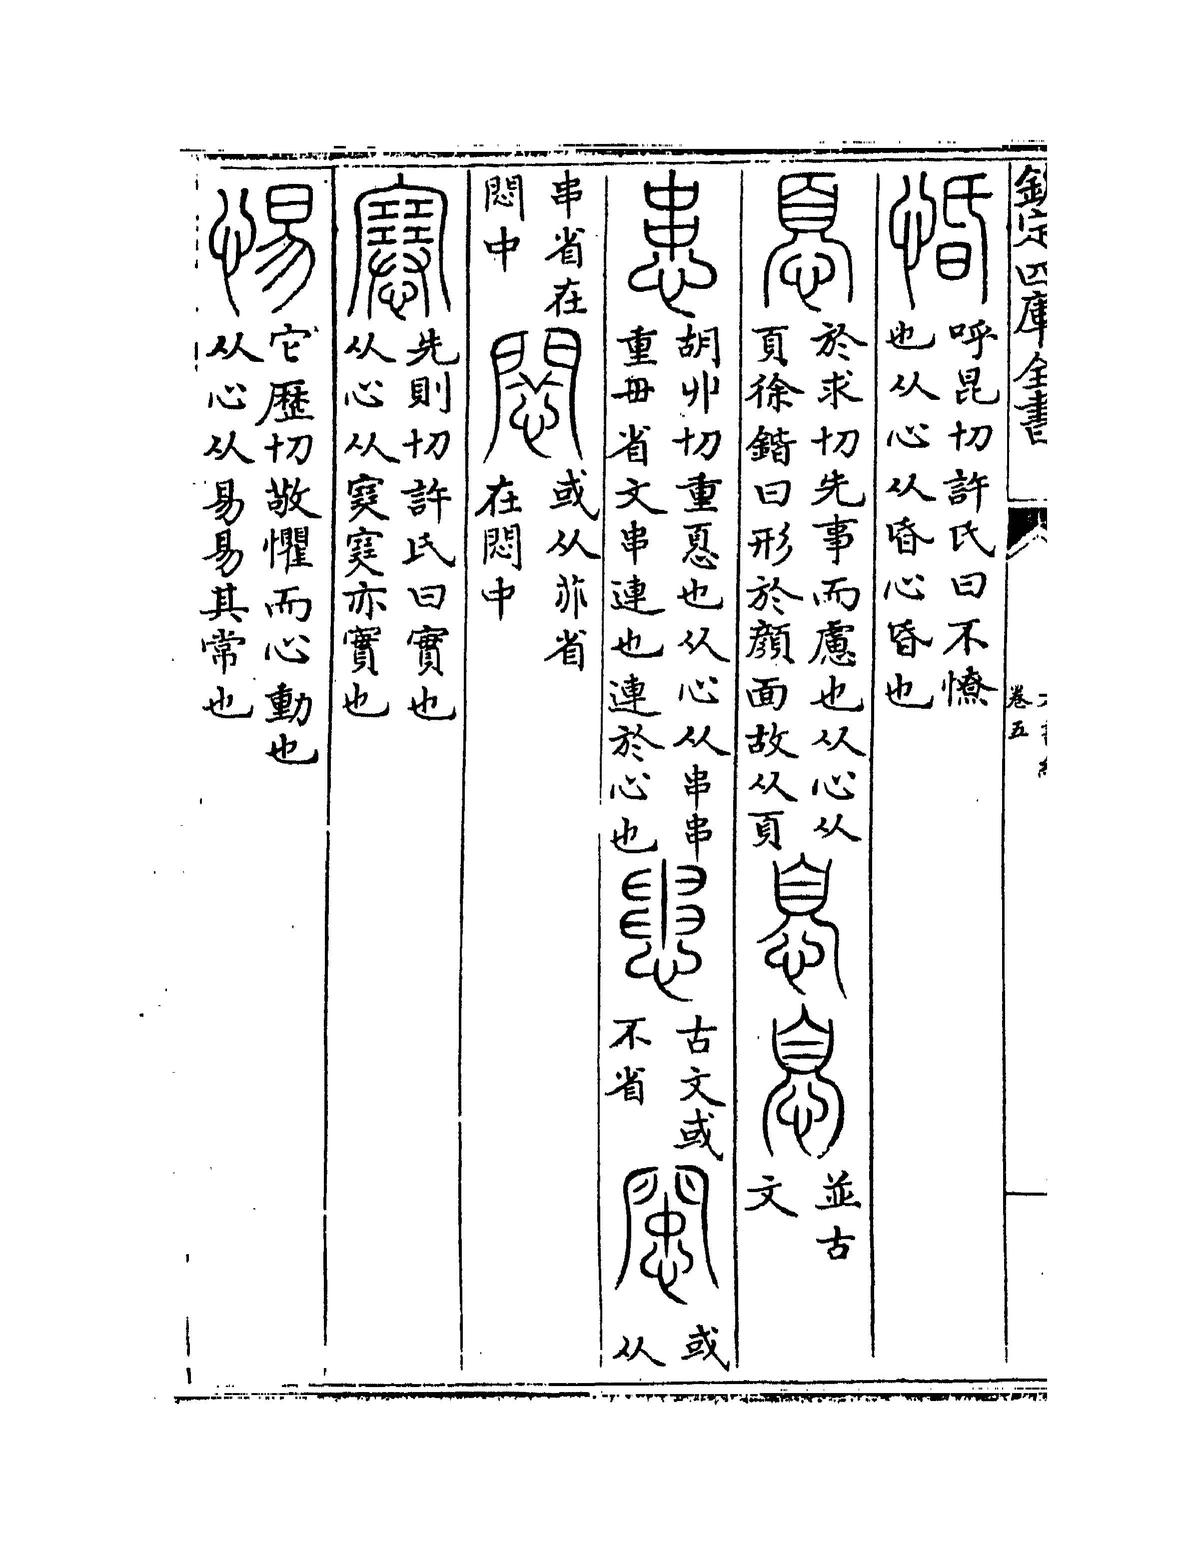 欽定四庫全書
卷五
惛
呼昆切許氏曰不憭
也从心从昏心昏也
𢝊
於求切先事而慮也从心从
頁徐鍇曰形於顔面故从頁
並古
文
患
胡丱切重𢝊也从心从串串
重毌省文串連也連於心也
古文或
不省
或
从
串省在
悶中
或从菲省
在悶中
先則切許氏曰實也
从心从𡫳𡫳亦實也
惕
它歷切敬懼而心動也
从心从易易其常也